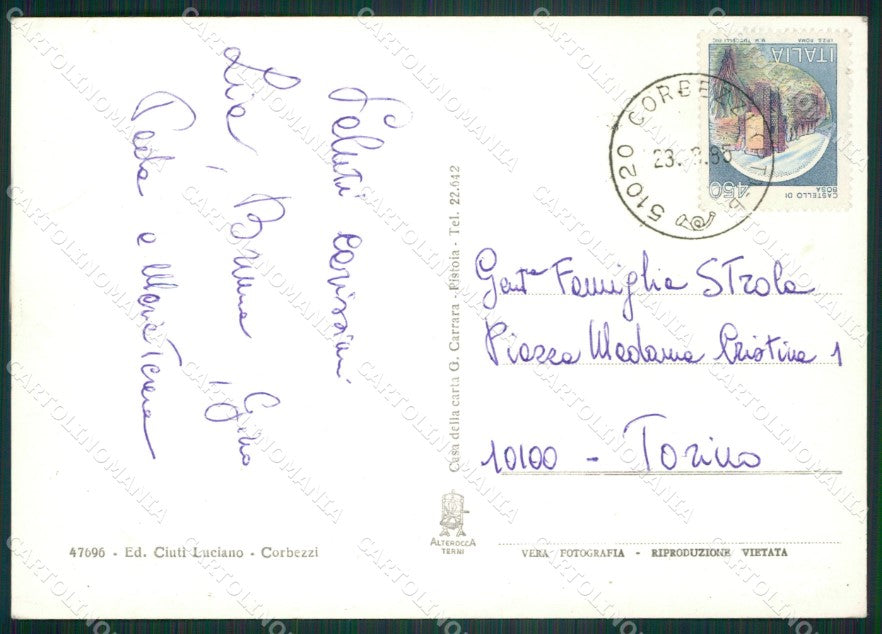 Saluti carissimi
Lia, Bruna, Gino
Paola e Maria Teresa
47696 - Ed. Ciuti Luciano - Corbezzi
Casa della carta G. Carrara - Pistoia - Tel. 22.642
ALTEROCCA
TERNI
ITALIA
CASTELLO DI
BOSA
450
51020 CORBEZZI
Gent.ma Famiglia Strola
Piazza Madama Cristina 1
10100 - Torino
VERA FOTOGRAFIA - RIPRODUZIONE VIETATA
CARTOLINOMANIA